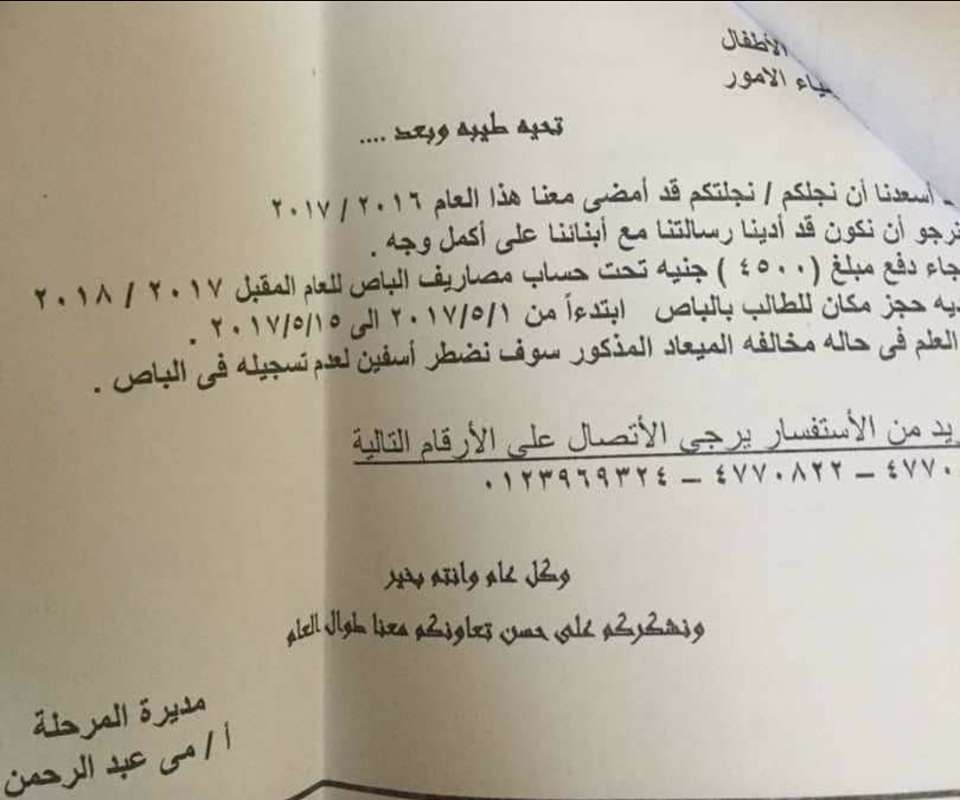 الأطفال
الامور
تحيه طيبه وبعد ....
أسعدنا أن نجلكم / نجلتكم قد أمضى معنا هذا العام ٢٠١٦ / ٢٠١٧
نرجو أن نكون قد أدينا رسالتنا مع أبنائنا على أكمل وجه .
دفع مبلغ ( ٤٥٠٠ ) جنيه تحت حساب مصاريف الباص للعام المقبل ٢٠١٧ / ٢٠١٨
حجز مكان للطالب بالباص ابتدءاً من ٢٠١٧/٥/١ الى ٢٠١٧/٥/١٥ .
العلم فى حاله مخالفه الميعاد المذكور سوف نضطر أسفين لعدم تسجيله فى الباص .
من الأستفسار يرجى الأتصال على الأرقام التالية
٤٧٧٠٨٢٢ – ٠١٢٣٩٦٩٣٢٤
وكل عام وانتم بخير
ونشكركم على حسن تعاونكم معنا طوال العام
مديرة المرحلة
أ / مى عبد الرحمن